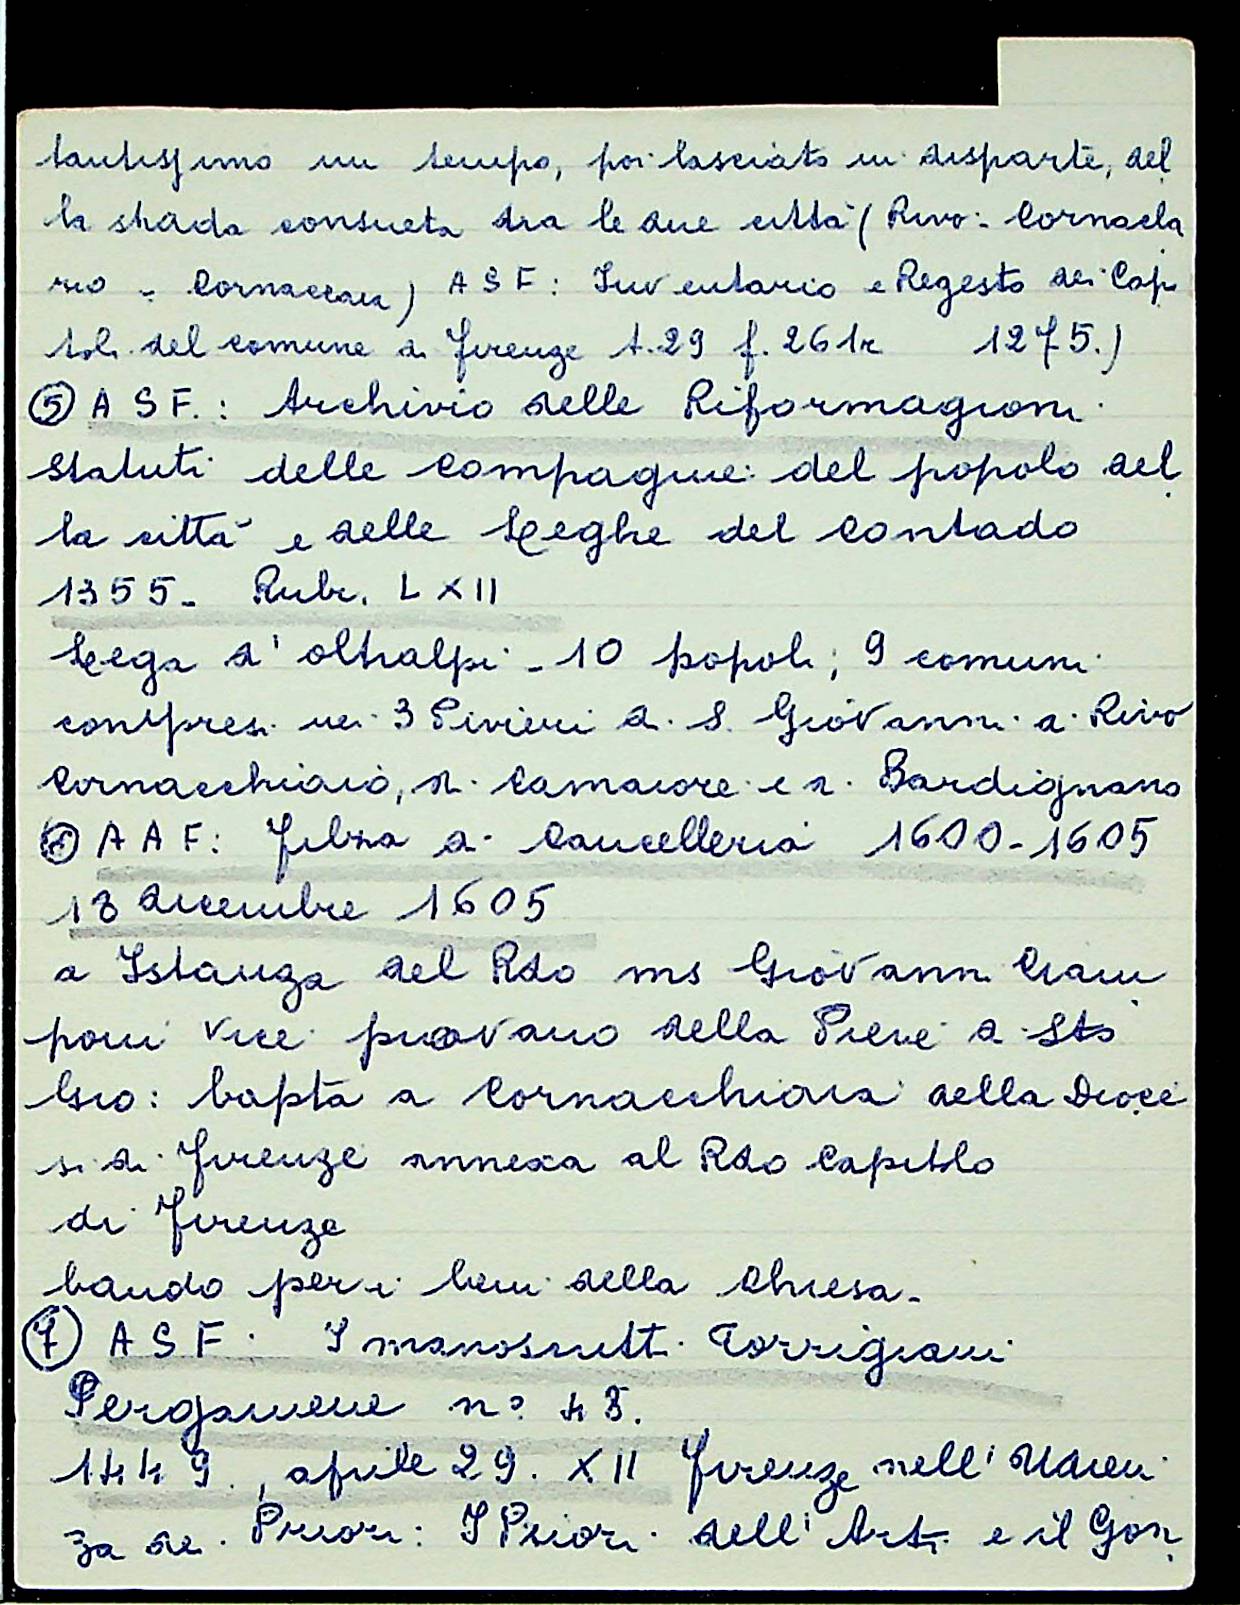 tantissimo un tempo, poi lasciato in disparte, del
la strada consueta tra le due città (Rivo - Cornacla
rio - Cornacciaia) ASF: Inventario e Regesto dei Capi
toli del comune di Firenze t.29 f.261r 1275.)
⑤ ASF.: Archivio delle Riformagioni
Statuti delle compagnie del popolo del
la città e delle Leghe del Contado
1355- Rubr. LXII
Lega d'oltralpi - 10 popoli; 9 comuni
compresi nei 3 Pivieri di S. Giovanni a Rivo
Cornacchiaio, di Camaiore e di Bordignano
⑥ AAF: Filza di Cancelleria 1600-1605
18 dicembre 1605
a Istanza del Rdo ms Giovanni Ciam
poni vice piovano della Pieve di Sto
Gio: bapta a Cornacchiaia della Dioce
si di Firenze annexa al Rdo Capitolo
di Firenze
bando per i beni della Chiesa.
⑦ ASF: I manoscritti Torrigiani
Pergamene n° 48.
1449, aprile 29. XII Firenze nell'Udien
za dei Priori: I Priori dell'Arti e il Gon